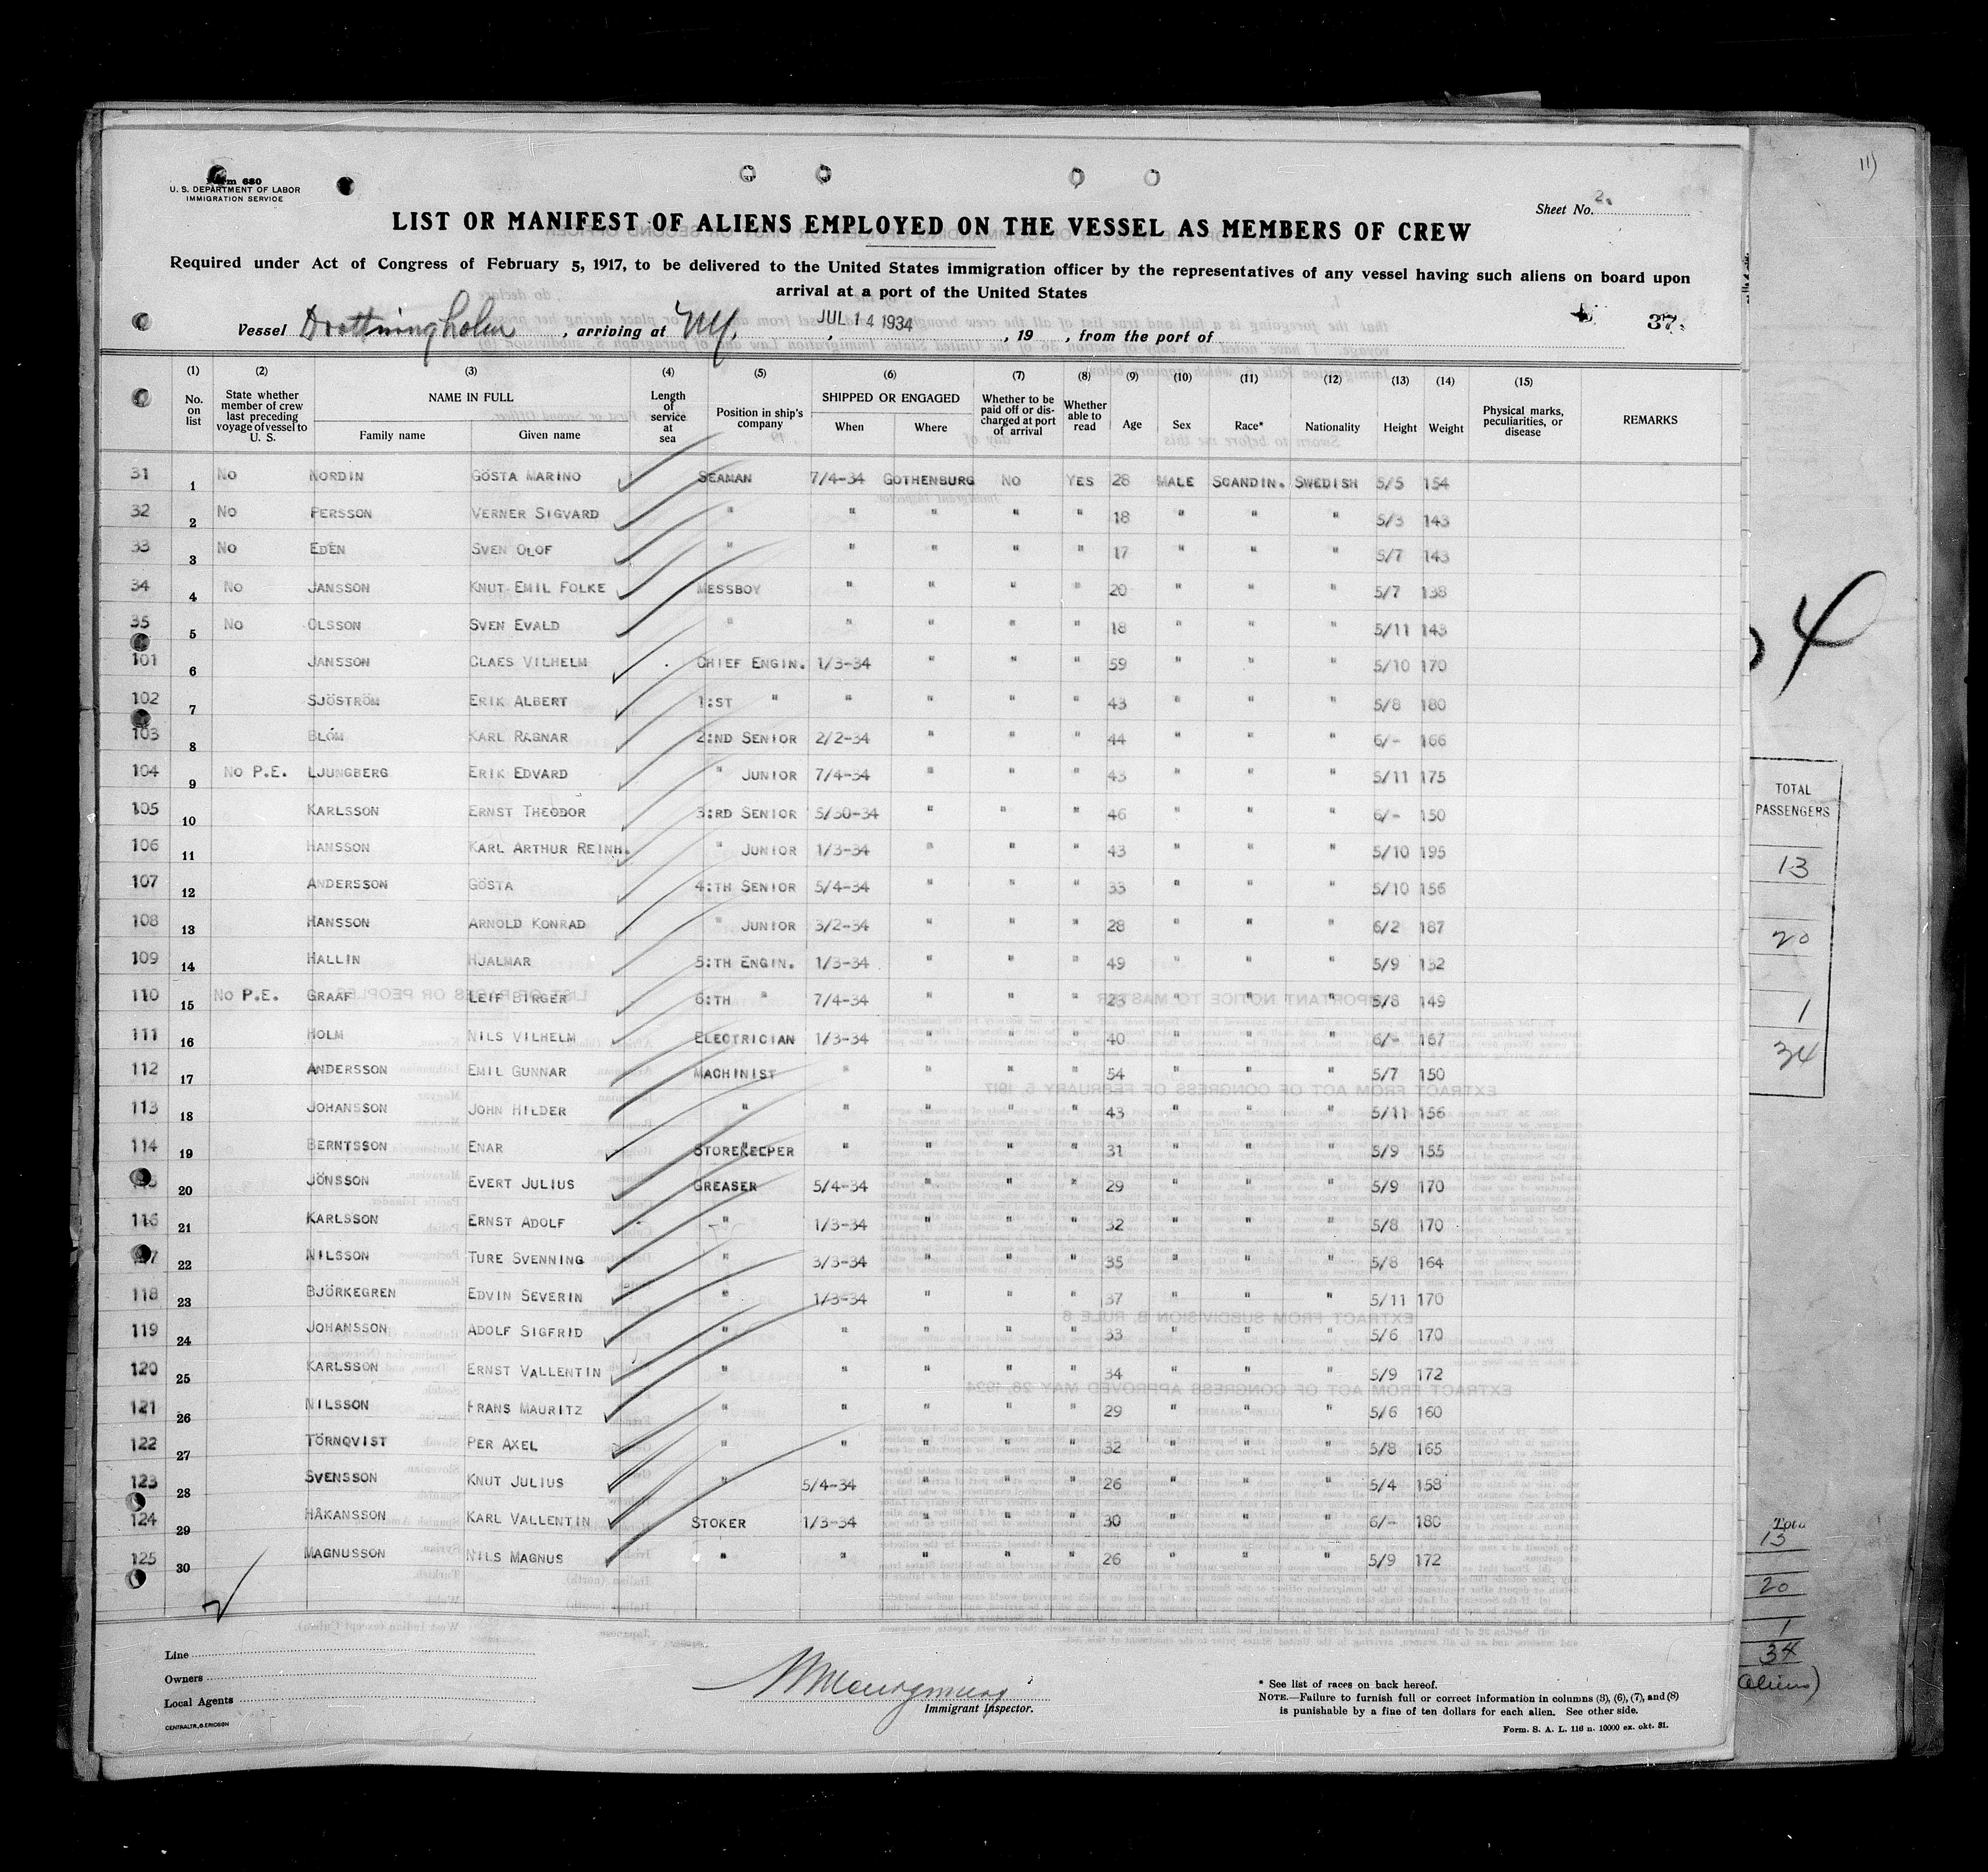 Form 680
U. S. DEPARTMENT OF LABOR
IMMIGRATION SERVICE
11)
Sheet No. 2.
LIST OR MANIFEST OF ALIENS EMPLOYED ON THE VESSEL AS MEMBERS OF CREW
Required under Act of Congress of February 5, 1917, to be delivered to the United States immigration officer by the representatives of any vessel having such aliens on board upon
arrival at a port of the United States
Vessel Drottningholm, arriving at NY., JUL 14 1934, 19 , from the port of
37.
(1) (2) (3) (4) (5) (6) (7) (8) (9) (10) (11) (12) (13) (14) (15)
No. on list
State whether member of crew last preceding voyage of vessel to U. S.
NAME IN FULL
Family name Given name
Length of service at sea
Position in ship's company
SHIPPED OR ENGAGED
When Where
Whether to be paid off or discharged at port of arrival
Whether able to read
Age Sex Race* Nationality Height Weight
Physical marks, peculiarities, or disease
REMARKS
31 1 No NORDIN GÖSTA MARINO SEAMAN 7/4-34 GOTHENBURG NO YES 28 MALE SCANDIN. SWEDISH 5/5 154
32 2 No PERSSON VERNER SIGVARD " " " " " 18 " " " 5/3 143
33 3 No EDÉN SVEN OLOF " " " " " 17 " " " 5/7 143
34 4 No JANSSON KNUT EMIL FOLKE MESSBOY " " " " 20 " " " 5/7 138
35 5 No OLSSON SVEN EVALD " " " " " 18 " " " 5/11 143
101 6 JANSSON CLAES VILHELM CHIEF ENGIN. 1/3-34 " " " 59 " " " 5/10 170
102 7 SJÖSTRÖM ERIK ALBERT 1:ST " " " " " 43 " " " 5/8 180
103 8 BLOM KARL RAGNAR 2:ND SENIOR 2/2-34 " " " 44 " " " 6/- 166
104 9 No P.E. LJUNGBERG ERIK EDVARD " JUNIOR 7/4-34 " " " 43 " " " 5/11 175
105 10 KARLSSON ERNST THEODOR 3:RD SENIOR 5/30-34 " " " 46 " " " 6/- 150
106 11 HANSSON KARL ARTHUR REINH. " JUNIOR 1/3-34 " " " 43 " " " 5/10 195
107 12 ANDERSSON GÖSTA 4:TH SENIOR 5/4-34 " " " 33 " " " 5/10 156
108 13 HANSSON ARNOLD KONRAD " JUNIOR 3/2-34 " " " 28 " " " 6/2 187
109 14 HALLIN HJALMAR 5:TH ENGIN. 1/3-34 " " " 49 " " " 5/9 132
110 15 No P.E. GRAAF LEIF BIRGER 6:TH " 7/4-34 " " " 23 " " " 5/8 149
111 16 HOLM NILS VILHELM ELECTRICIAN 1/3-34 " " " 40 " " " 6/- 167
112 17 ANDERSSON EMIL GUNNAR MACHINIST " " " " 54 " " " 5/7 150
113 18 JOHANSSON JOHN HILDER " " " " " 43 " " " 5/11 156
114 19 BERNTSSON ENAR STOREKEEPER " " " " 31 " " " 5/9 155
20 JÖNSSON EVERT JULIUS GREASER 5/4-34 " " " 29 " " " 5/9 170
116 21 KARLSSON ERNST ADOLF " 1/3-34 " " " 32 " " " 5/8 170
7 22 NILSSON TURE SVENNING " 3/3-34 " " " 35 " " " 5/8 164
118 23 BJÖRKEGREN EDVIN SEVERIN " 1/3-34 " " " 37 " " " 5/11 170
119 24 JOHANSSON ADOLF SIGFRID " " " " " 33 " " " 5/6 170
120 25 KARLSSON ERNST VALLENTIN " " " " " 34 " " " 5/9 172
121 26 NILSSON FRANS MAURITZ " " " " " 29 " " " 5/6 160
122 27 TÖRNQVIST PER AXEL " " " " " 32 " " " 5/8 165
123 28 SVENSSON KNUT JULIUS " 5/4-34 " " " 26 " " " 5/4 158
124 29 HÅKANSSON KARL VALLENTIN STOKER 1/3-34 " " " 30 " " " 6/- 180
125 30 MAGNUSSON NILS MAGNUS " " " " " 26 " " " 5/9 172
Line
Owners
Local Agents
CENTRALTR., G. ERICSON
Immigrant Inspector.
* See list of races on back hereof.
NOTE.—Failure to furnish full or correct information in columns (3), (6), (7), and (8)
is punishable by a fine of ten dollars for each alien. See other side.
Form. S. A. L. 116 n. 10000 ex. okt. 31.
4
TOTAL
PASSENGERS
13
20
1
34
Tota
13
20
1
34
Aliens)